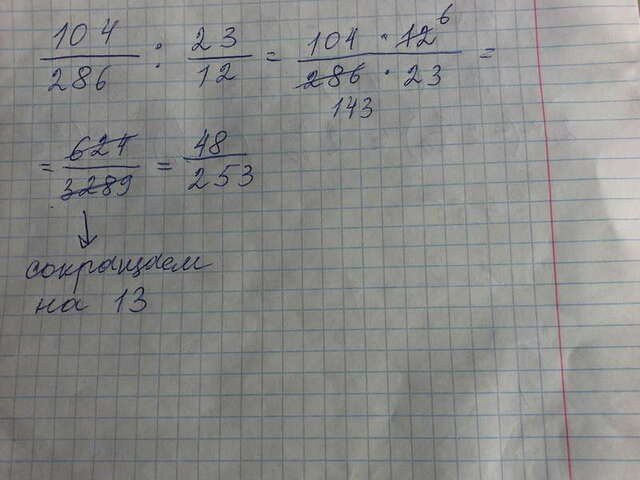 104/286 : 23/12 = 104 · 12 6/286 · 23 =
143
= 624/3289 = 48/253
сокращаем
на 13